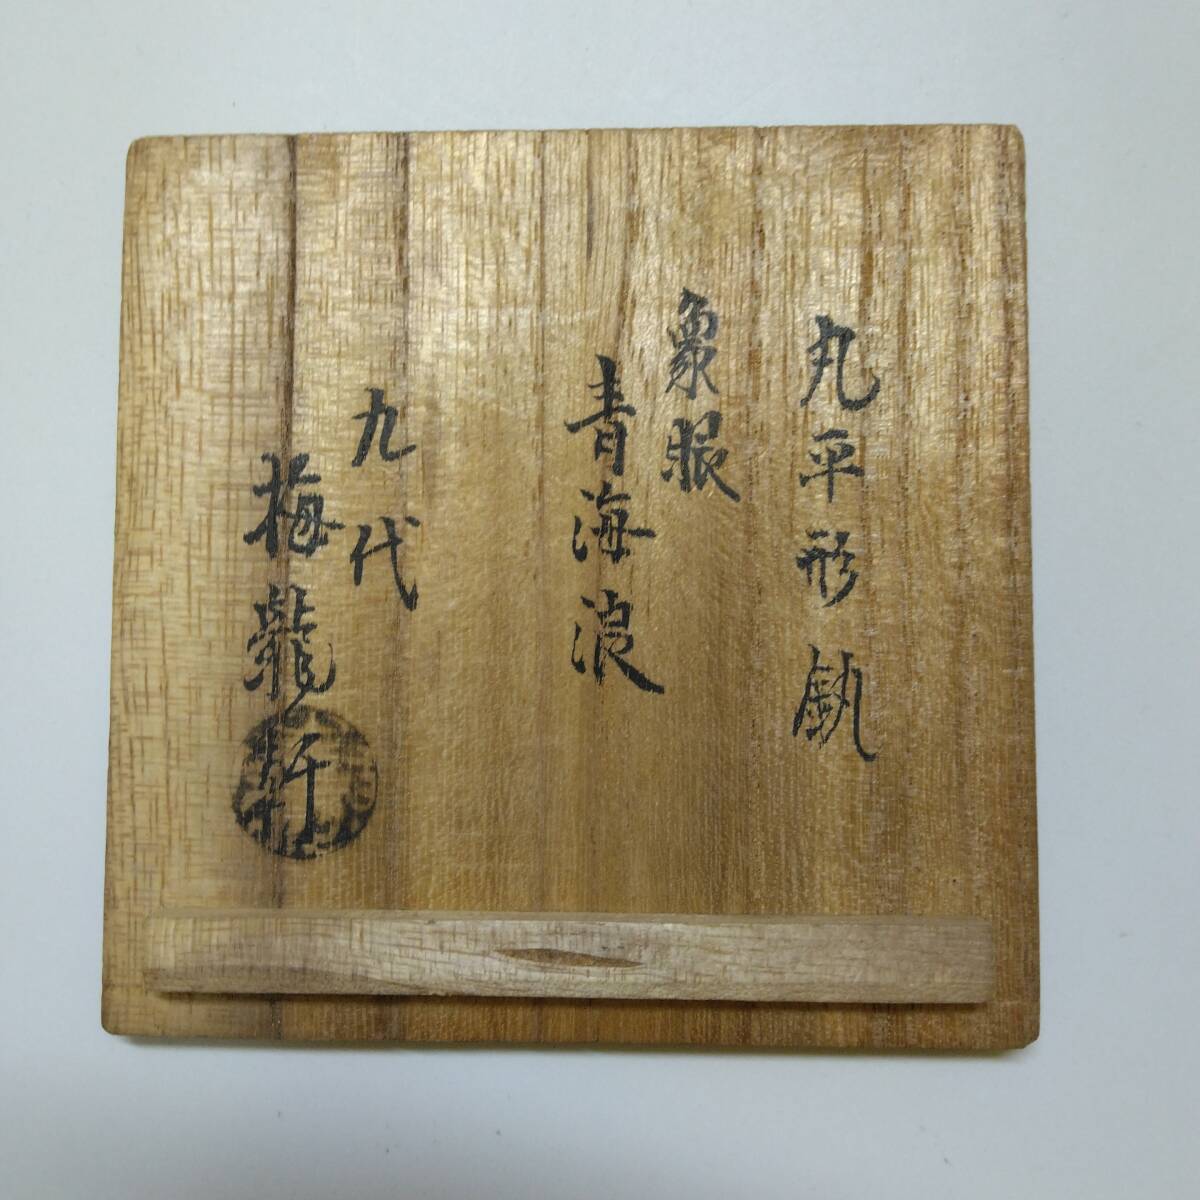 丸平形釻
象眼
青海浪
九代
梅龍軒